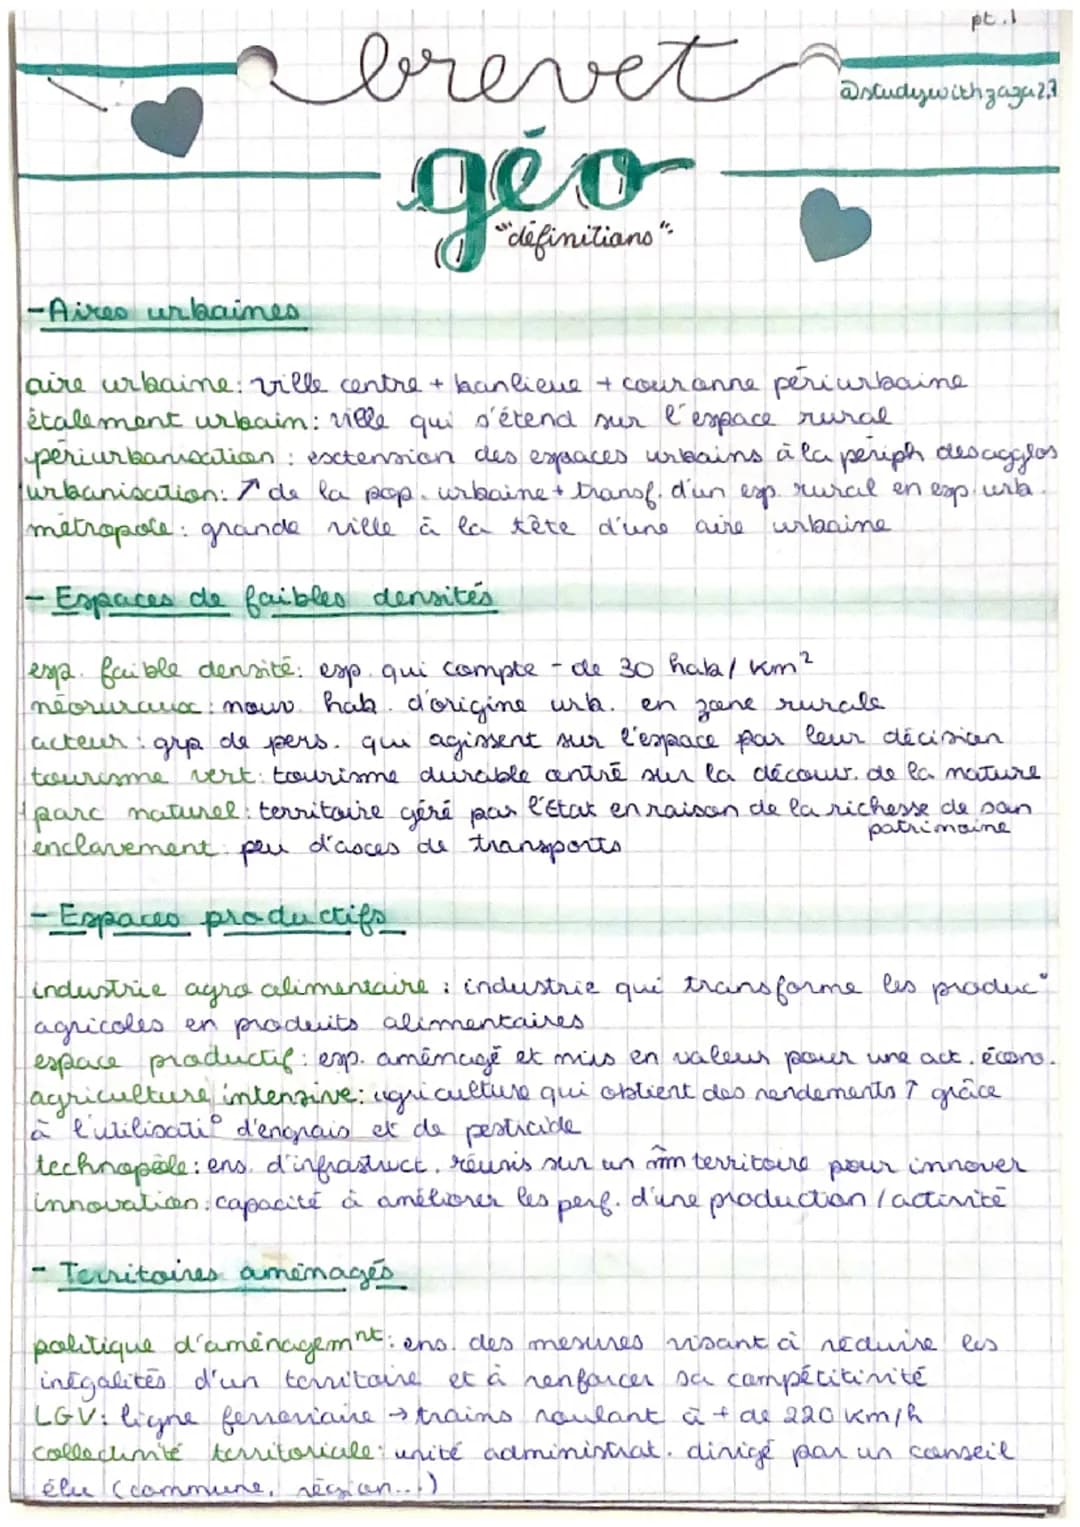 pt.1
brevet
@studywithzaza2.1
géo
"définitions":
-Aires urbaines
aire urbaine: ville centre + banlieue + couronne périurbaine
étalement urbain: ville qui s'étend sur l'espace rural
périurbanisation: extension des espaces urbains à la périph des agglos
urbanisation: ↗ de la pop. urbaine + transf. d'un esp. rural en esp. urb.
métropole: grande ville à la tête d'une aire urbaine
- Espaces de faibles densités
esp. faible densité: esp. qui compte - de 30 hab/km²
néoruraux: nouv. hab. d'origine urb. en zone rurale
acteur: grp de pers. qui agissent sur l'espace par leur décision
tourisme vert: tourisme durable centré sur la découv. de la nature
parc naturel: territoire géré par l'État en raison de la richesse de son
patrimoine
enclavement: peu d'acces de transports
- Espaces productifs
industrie agro alimentaire: industrie qui transforme les produc°
agricoles en produits alimentaires
espace productif: esp. aménagé et mis en valeur pour une act. écono.
agriculture intensive: agriculture qui obtient des rendements ↑ grâce
à l'utilisati° d'engrais et de pesticide
technopôle: ens. d'infrastruct. réunis sur un mm territoire pour innover
innovation: capacité à améliorer les perf. d'une production / activité
- Territoires aménagés
politique d'aménagemnt: ens. des mesures visant à réduire les
inégalités d'un territoire et à renforcer sa compétitivité
LGV: ligne ferroviaire → trains roulant à + de 220 km/h
collectivité territoriale: unité administrat. dirigé par un conseil
élu (commune, région...)